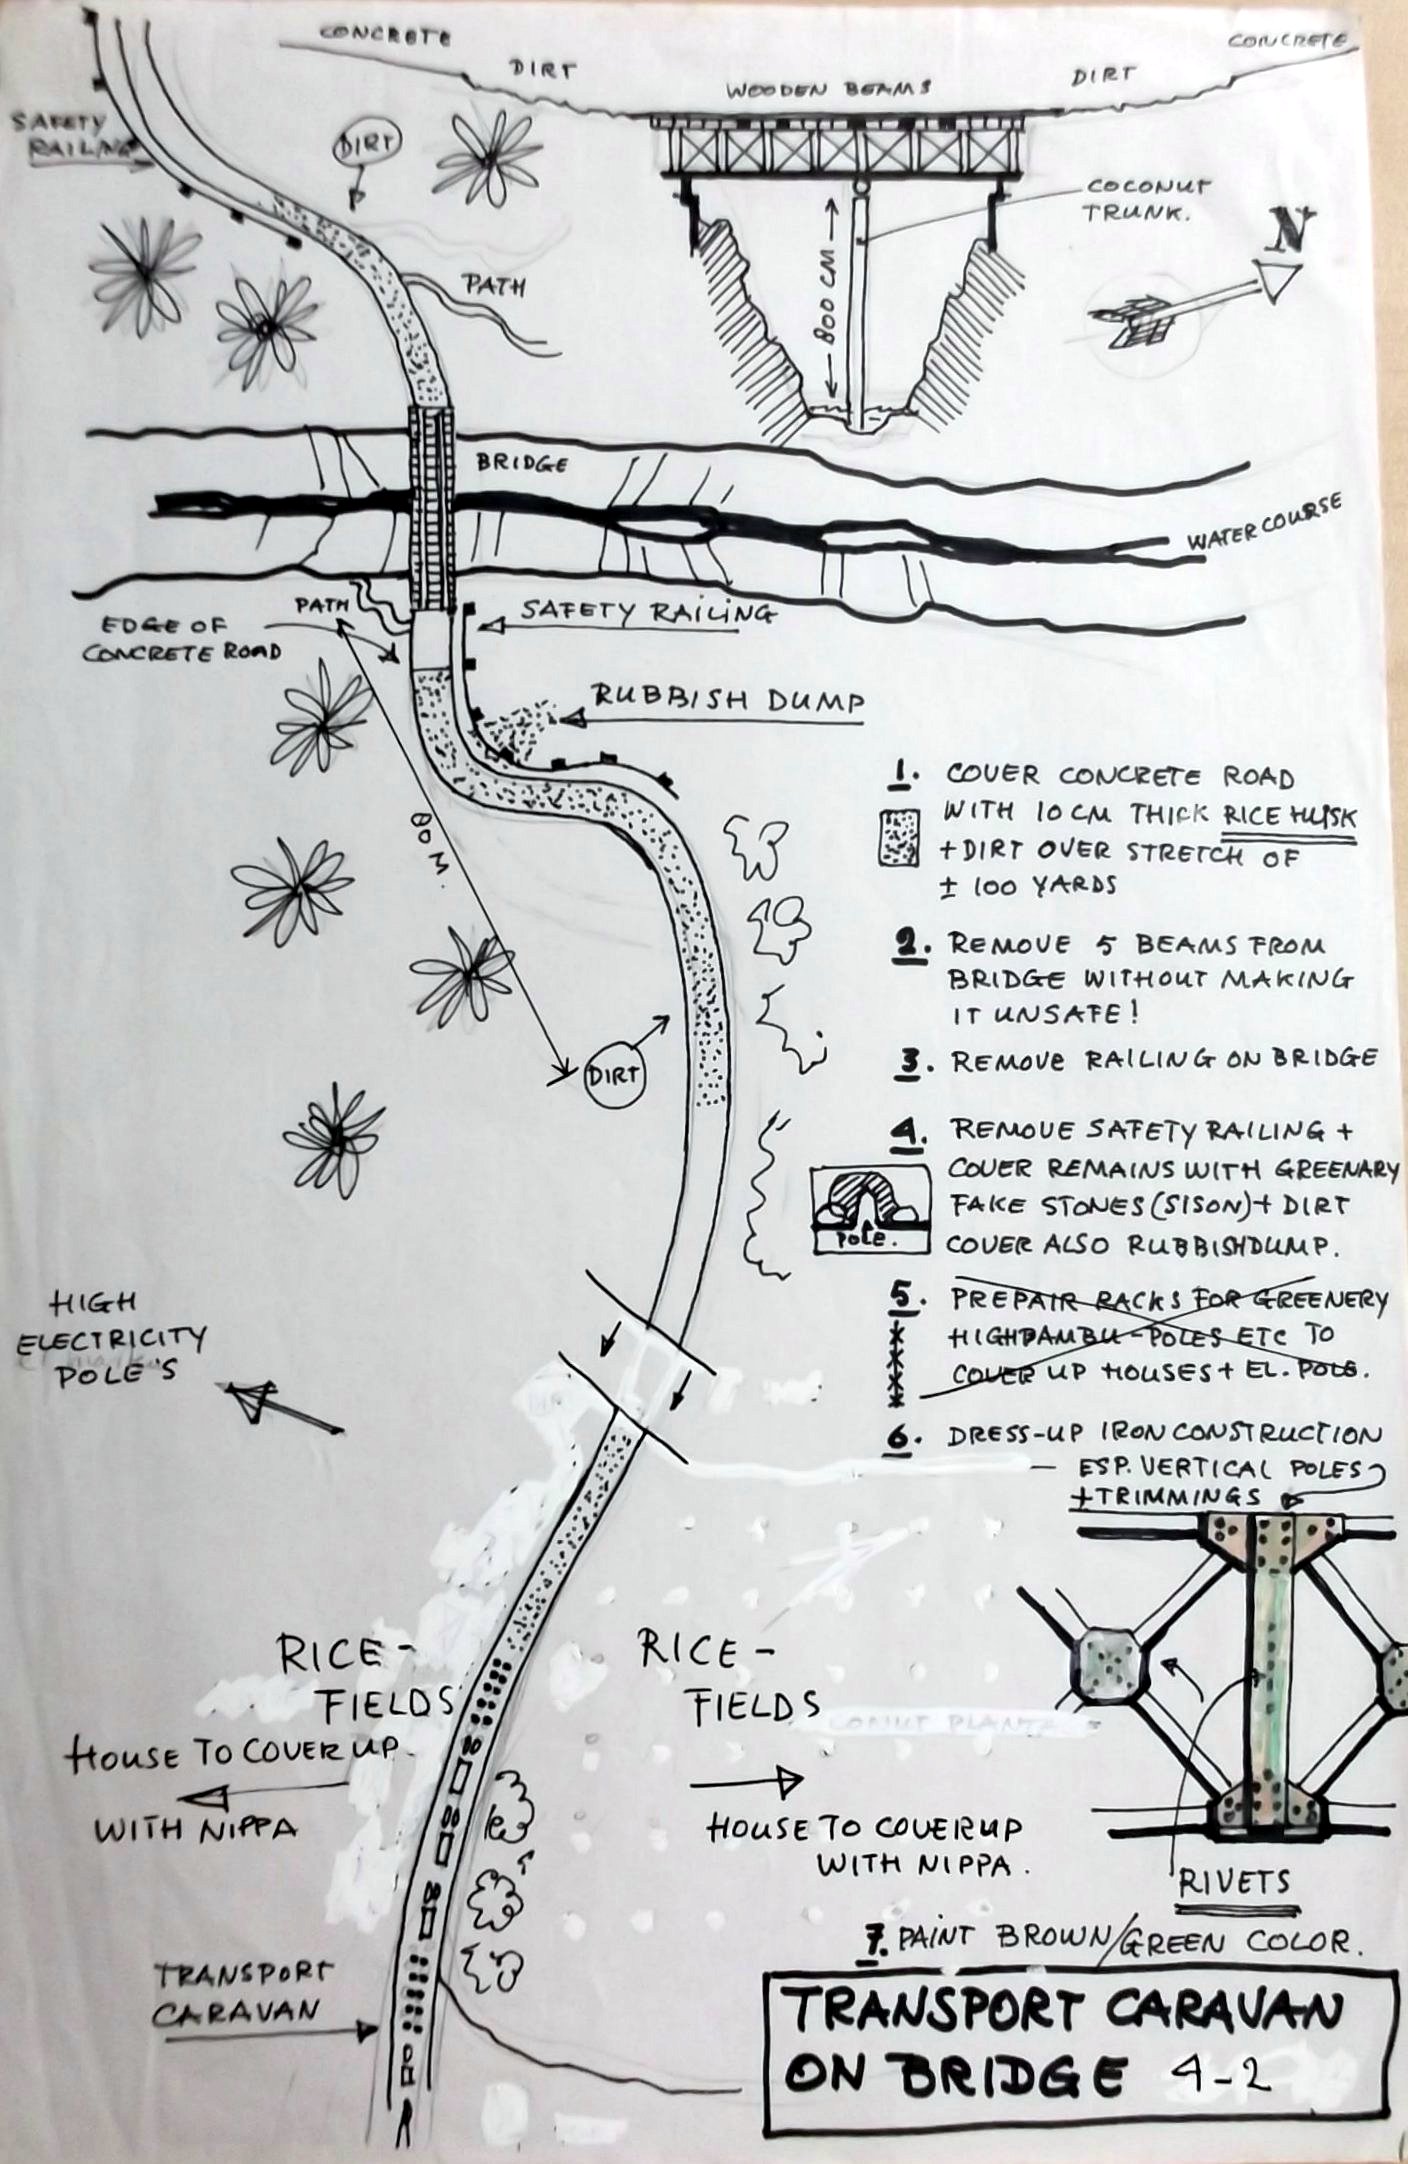 CONCRETE
CONCRETE
DIRT
DIRT
WOODEN BEAMS
SAFETY
RAILING
DIRT
COCONUT
TRUNK.
N
PATH
800 CM
BRIDGE
WATER COURSE
PATH
SAFETY RAILING
EDGE OF
CONCRETE ROAD
RUBBISH DUMP
80 M.
DIRT
1. COVER CONCRETE ROAD
WITH 10 CM THICK RICE HUSK
+ DIRT OVER STRETCH OF
± 100 YARDS
2. REMOVE 5 BEAMS FROM
BRIDGE WITHOUT MAKING
IT UNSAFE!
3. REMOVE RAILING ON BRIDGE
4. REMOVE SAFETY RAILING +
COVER REMAINS WITH GREENARY
FAKE STONES (SISON) + DIRT
COVER ALSO RUBBISHDUMP.
POLE.
5. PREPAIR RACKS FOR GREENERY
HIGH PAMBU-POLES ETC TO
COVER UP HOUSES + EL. POLE.
6. DRESS-UP IRON CONSTRUCTION
— ESP. VERTICAL POLES
+ TRIMMINGS
HIGH
ELECTRICITY
POLE'S
RICE-
FIELDS
RICE-
FIELDS
HOUSE TO COVER UP
WITH NIPPA
HOUSE TO COVER UP
WITH NIPPA.
RIVETS
7. PAINT BROWN/GREEN COLOR.
TRANSPORT
CARAVAN
TRANSPORT CARAVAN
ON BRIDGE 4-2